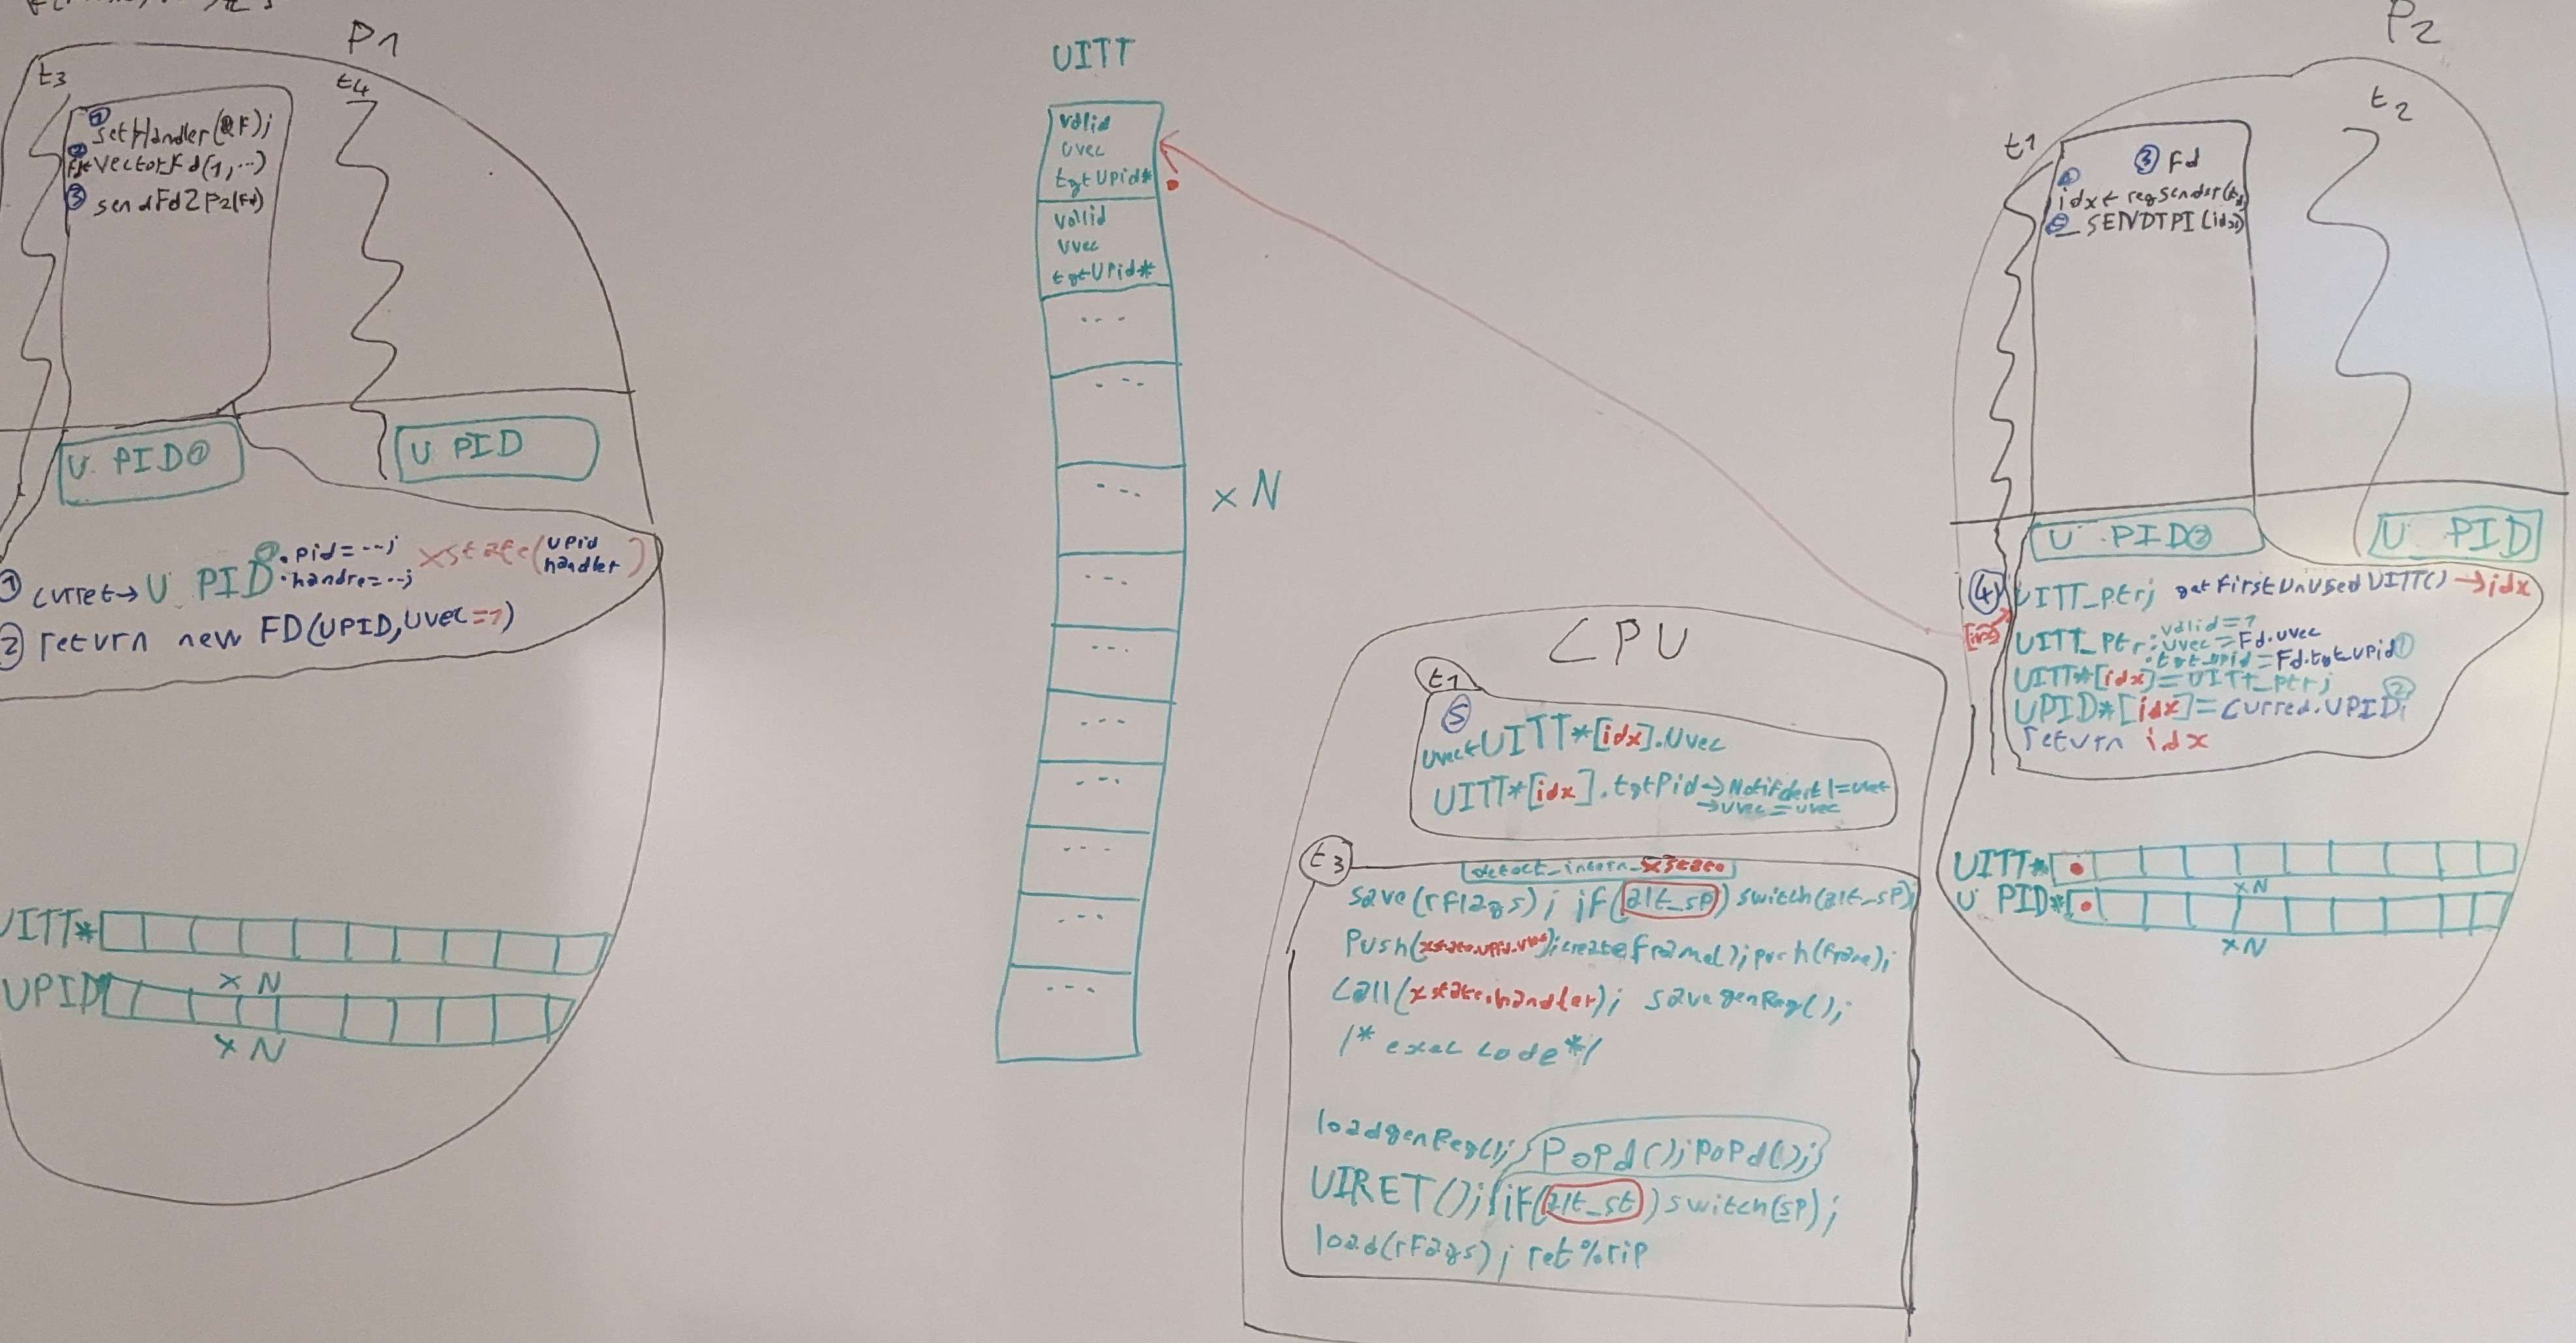 P1
t3
t4
① setHandler(&F);
② VectorFd(1,...)
③ sendFd2P2(Fd)
U PID①
U PID
① curret→U PID① .pid=...; .handre=...; xstate(upid handler)
② return new FD(UPID,uvec=1)
UITT*
x N
UPID
x N
UITT
valid
uvec
tgtUpid*
valid
uvec
tgtUpid*
...
...
...
...
...
...
...
...
...
...
x N
CPU
t1
⑤
uvec←UITT*[idx].Uvec
UITT*[idx].tgtPid→
→uvec=uvec
t3
detect_intern_xstate
save(rflags); if(alt_sp) switch(alt_sp);
Push(xstate.upid.uvec);createframe();push(frame);
Call(xstate.handler); savegenReg();
/* exec code*/
loadgenReg();{PoPd();PoPd();}
UIRET();if(alt_st)switch(sp);
load(rflags); ret%rip
P2
t1
t2
③ Fd
④ idx← regSender(fd)
⑤_SENDIPI(idx)
U PID②
U PID
④ UITT_ptr; getFirstUnUsedUITT()→idx
UITT_ptr.valid=1
.uvec=Fd.uvec
.tgt_upid=Fd.tgt_upid①
UITT*[idx]=UITT_ptr;
UPID*[idx]=curred.UPID②;
return idx
UITT*
xN
U PID*
xN